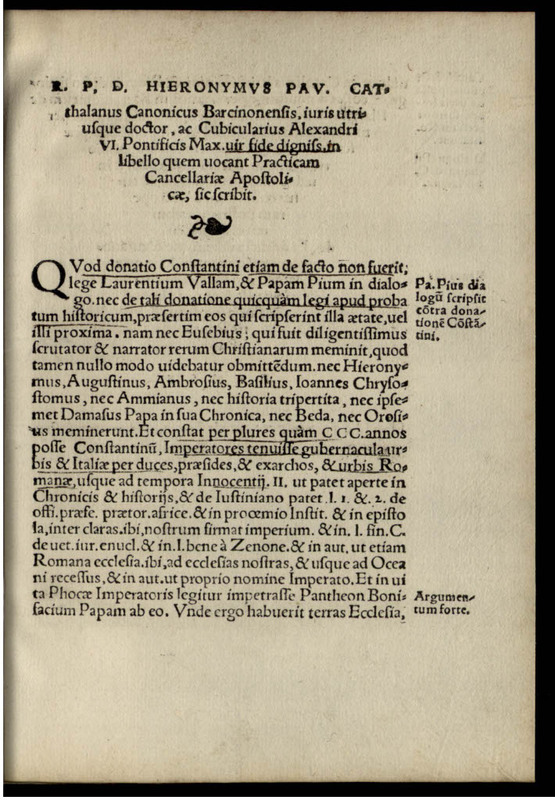 R. P. D. HIERONYMVS PAV. CAT-
thalanus Canonicus Barcinonensis, iuris utri-
usque doctor, ac Cubicularius Alexandri
VI. Pontificis Max. uir fide digniss. in
libello quem uocant Practicam
Cancellariæ Apostoli-
cæ, sic scribit.
QVod donatio Constantini etiam de facto non fuerit,
lege Laurentium Vallam, & Papam Pium in dialo-
go. nec de tali donatione quicquàm legi apud proba
tum historicum, præsertim eos qui scripserint illa ætate, uel
illi proxima. nam nec Eusebius, qui fuit diligentissimus
scrutator & narrator rerum Christianarum meminit, quod
tamen nullo modo uidebatur obmittēdum. nec Hierony-
mus, Augustinus, Ambrosius, Basilius, Ioannes Chryso-
stomus, nec Ammianus, nec historia tripertita, nec ipse-
met Damasus Papa in sua Chronica, nec Beda, nec Orosi-
us meminerunt. Et constat per plures quàm CCC. annos
posse Constantinū, Imperatores tenuisse gubernacula ur-
bis & Italiæ per duces, præsides, & exarchos, & urbis Ro-
manæ, usque ad tempora Innocentij. II. ut patet aperte in
Chronicis & historijs, & de Iustiniano patet l. 1. & .2. de
offi. præfe. prætor. africe. & in proœmio Instit. & in episto
la, inter claras. ibi, nostrum firmat imperium. & in. l. fin. C.
de uet. iur. enucl. & in. l. bene à Zenone. & in aut. ut etiam
Romana ecclesia. ibi, ad ecclesias nostras, & usque ad Ocea
ni recessus, & in aut. ut proprio nomine Imperato. Et in ui
ta Phocæ Imperatoris legitur impetrasse Pantheon Boni-
facium Papam ab eo. Vnde ergo habuerit terras Ecclesia,
Pa. Pius dia
logū scripsit
cōtra dona-
tionē Cōstā-
tini.
Argumen-
tum forte.